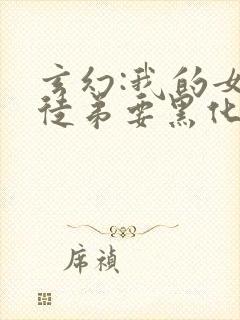 玄幻:我的女
徒弟要黑化
席祯